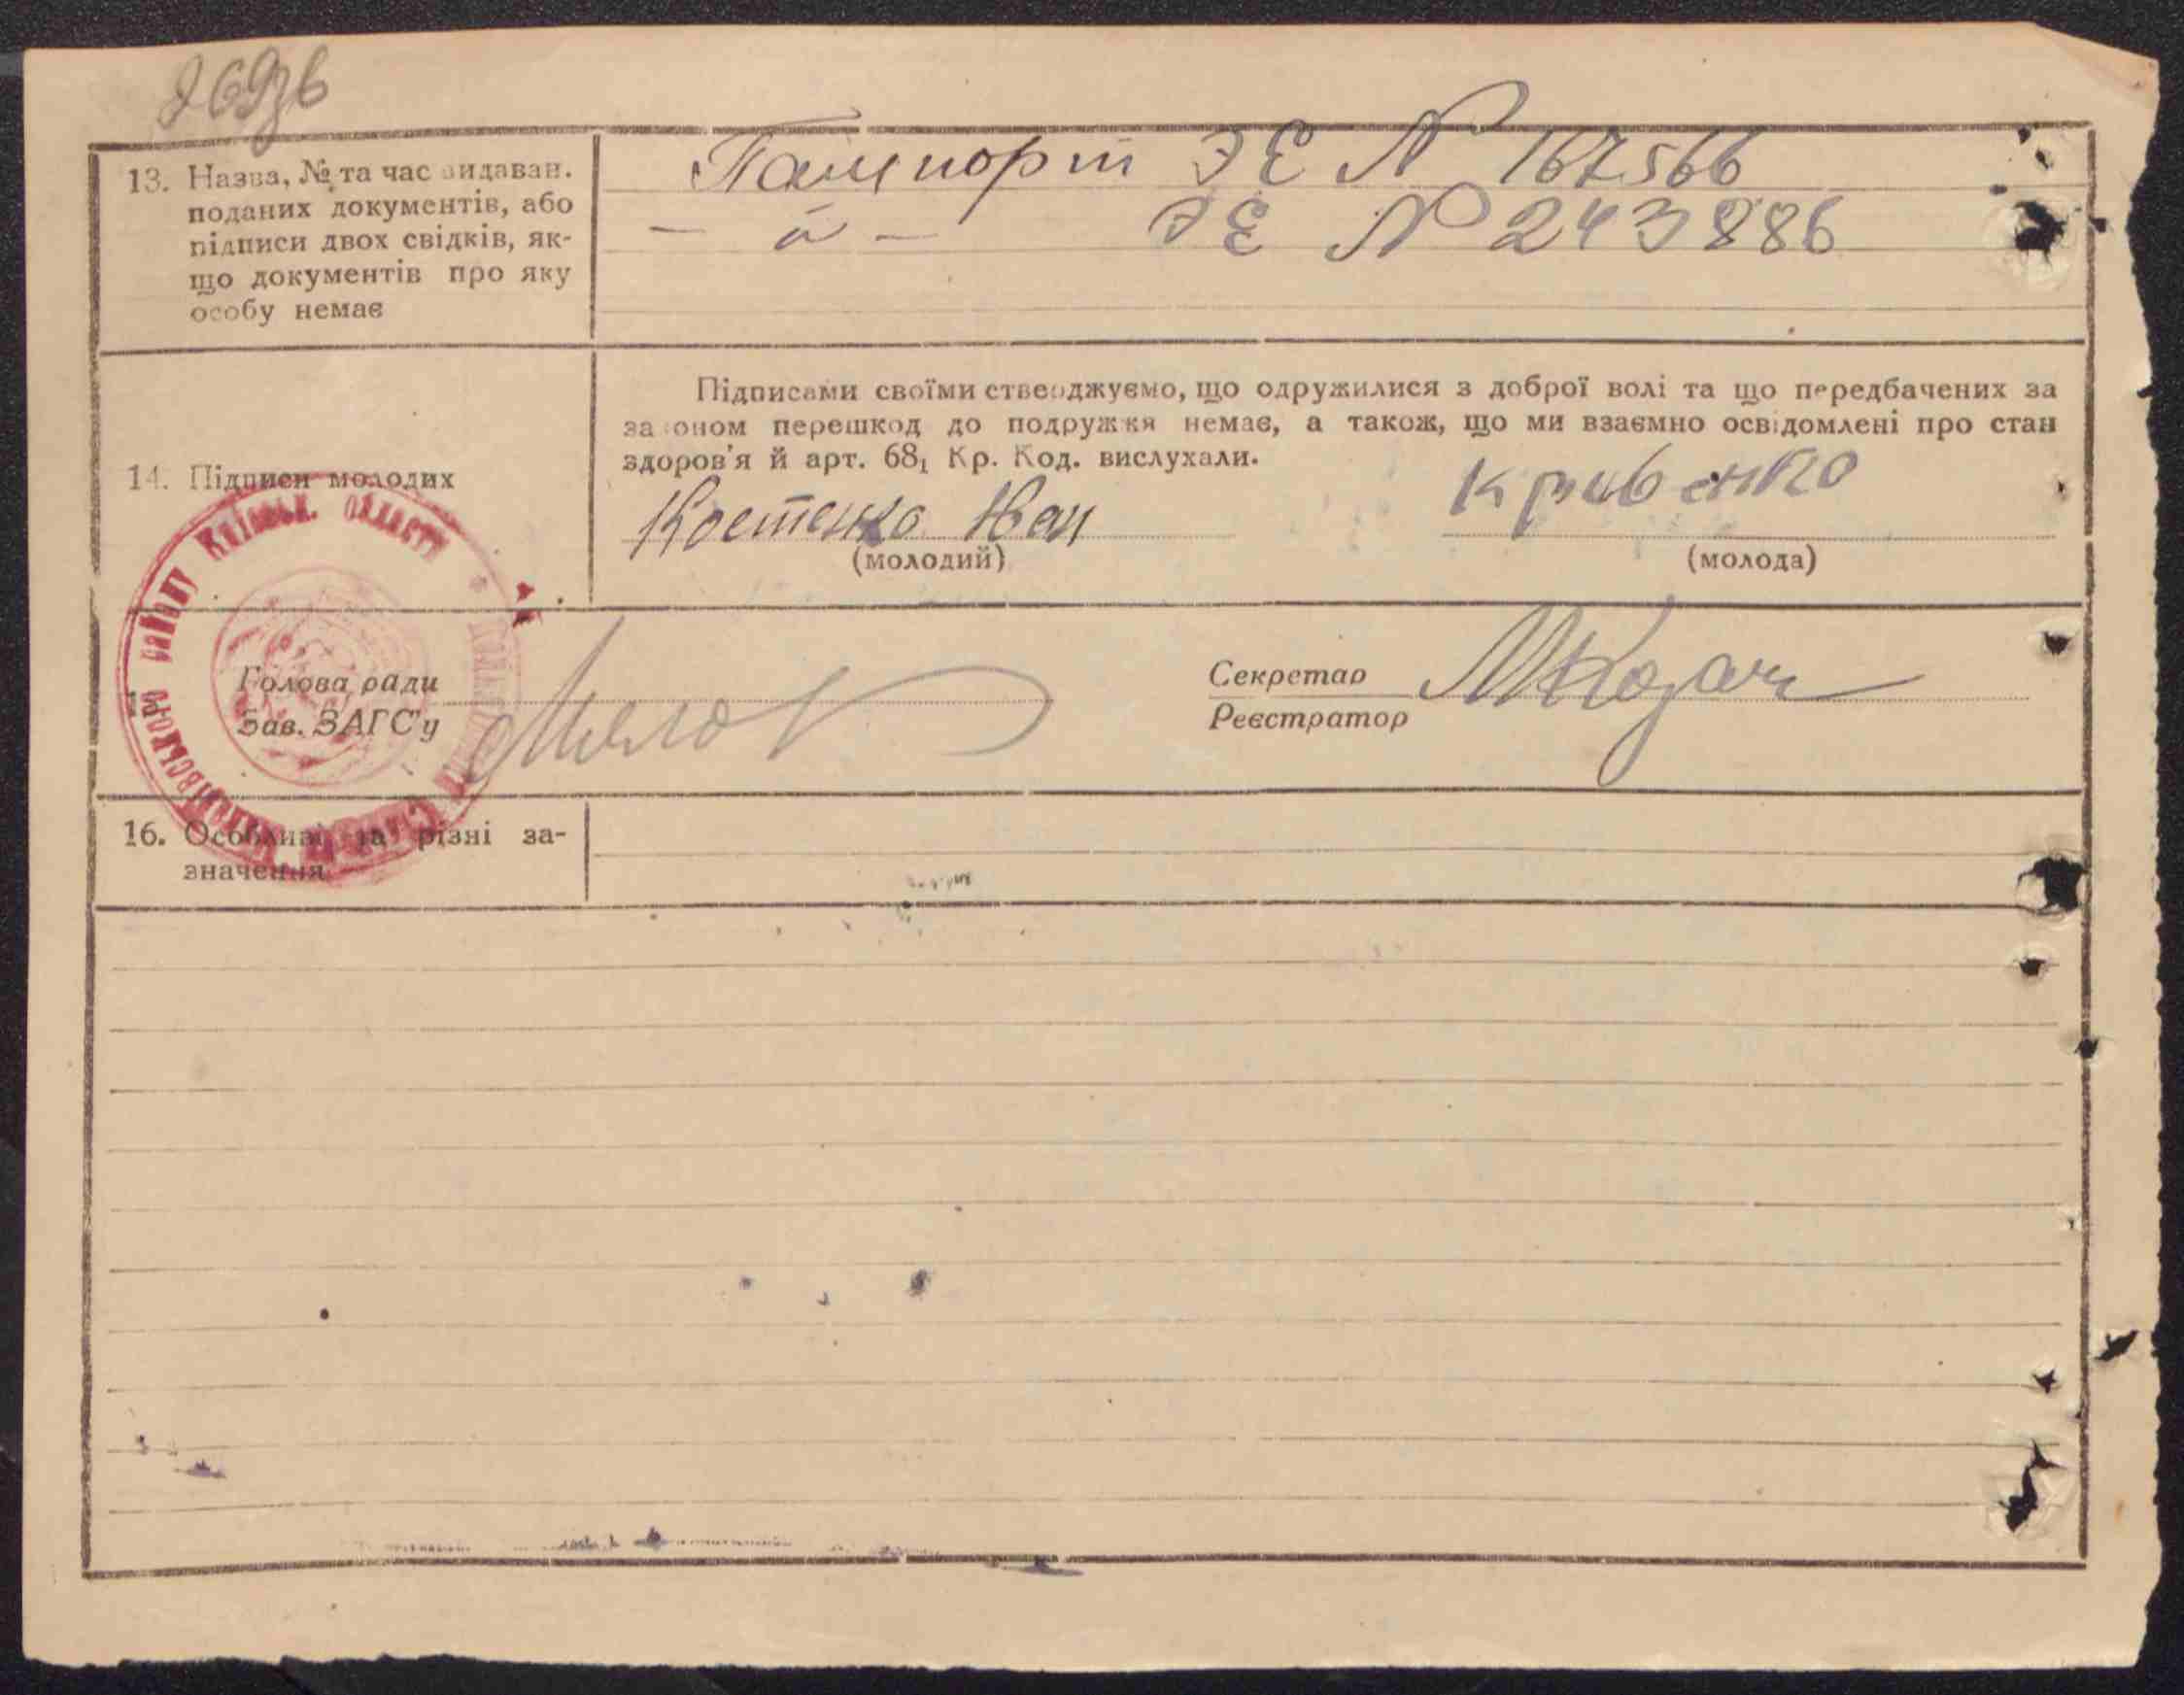 269зв
13. Назва, № та час видаван.
поданих документів, або
підписи двох свідків, як-
що документів про яку
особу немає
Пашпорт ЭЕ № 167566
— " — ЭЕ № 243886
14. Підписи молодих
Підписами своїми стверджуємо, що одружилися з доброї волі та що передбачених за
законом перешкод до подружжя немає, а також, що ми взаємно освідомлені про стан
здоров'я й арт. 68₁ Кр. Код. вислухали.
Костенко Иван
Кривенко
(молодий)
(молода)
району Київськ. области
Голова ради
Зав. ЗАГС'у
Секретар
Реєстратор
МКозач
16. Особливі та різні за-
значення